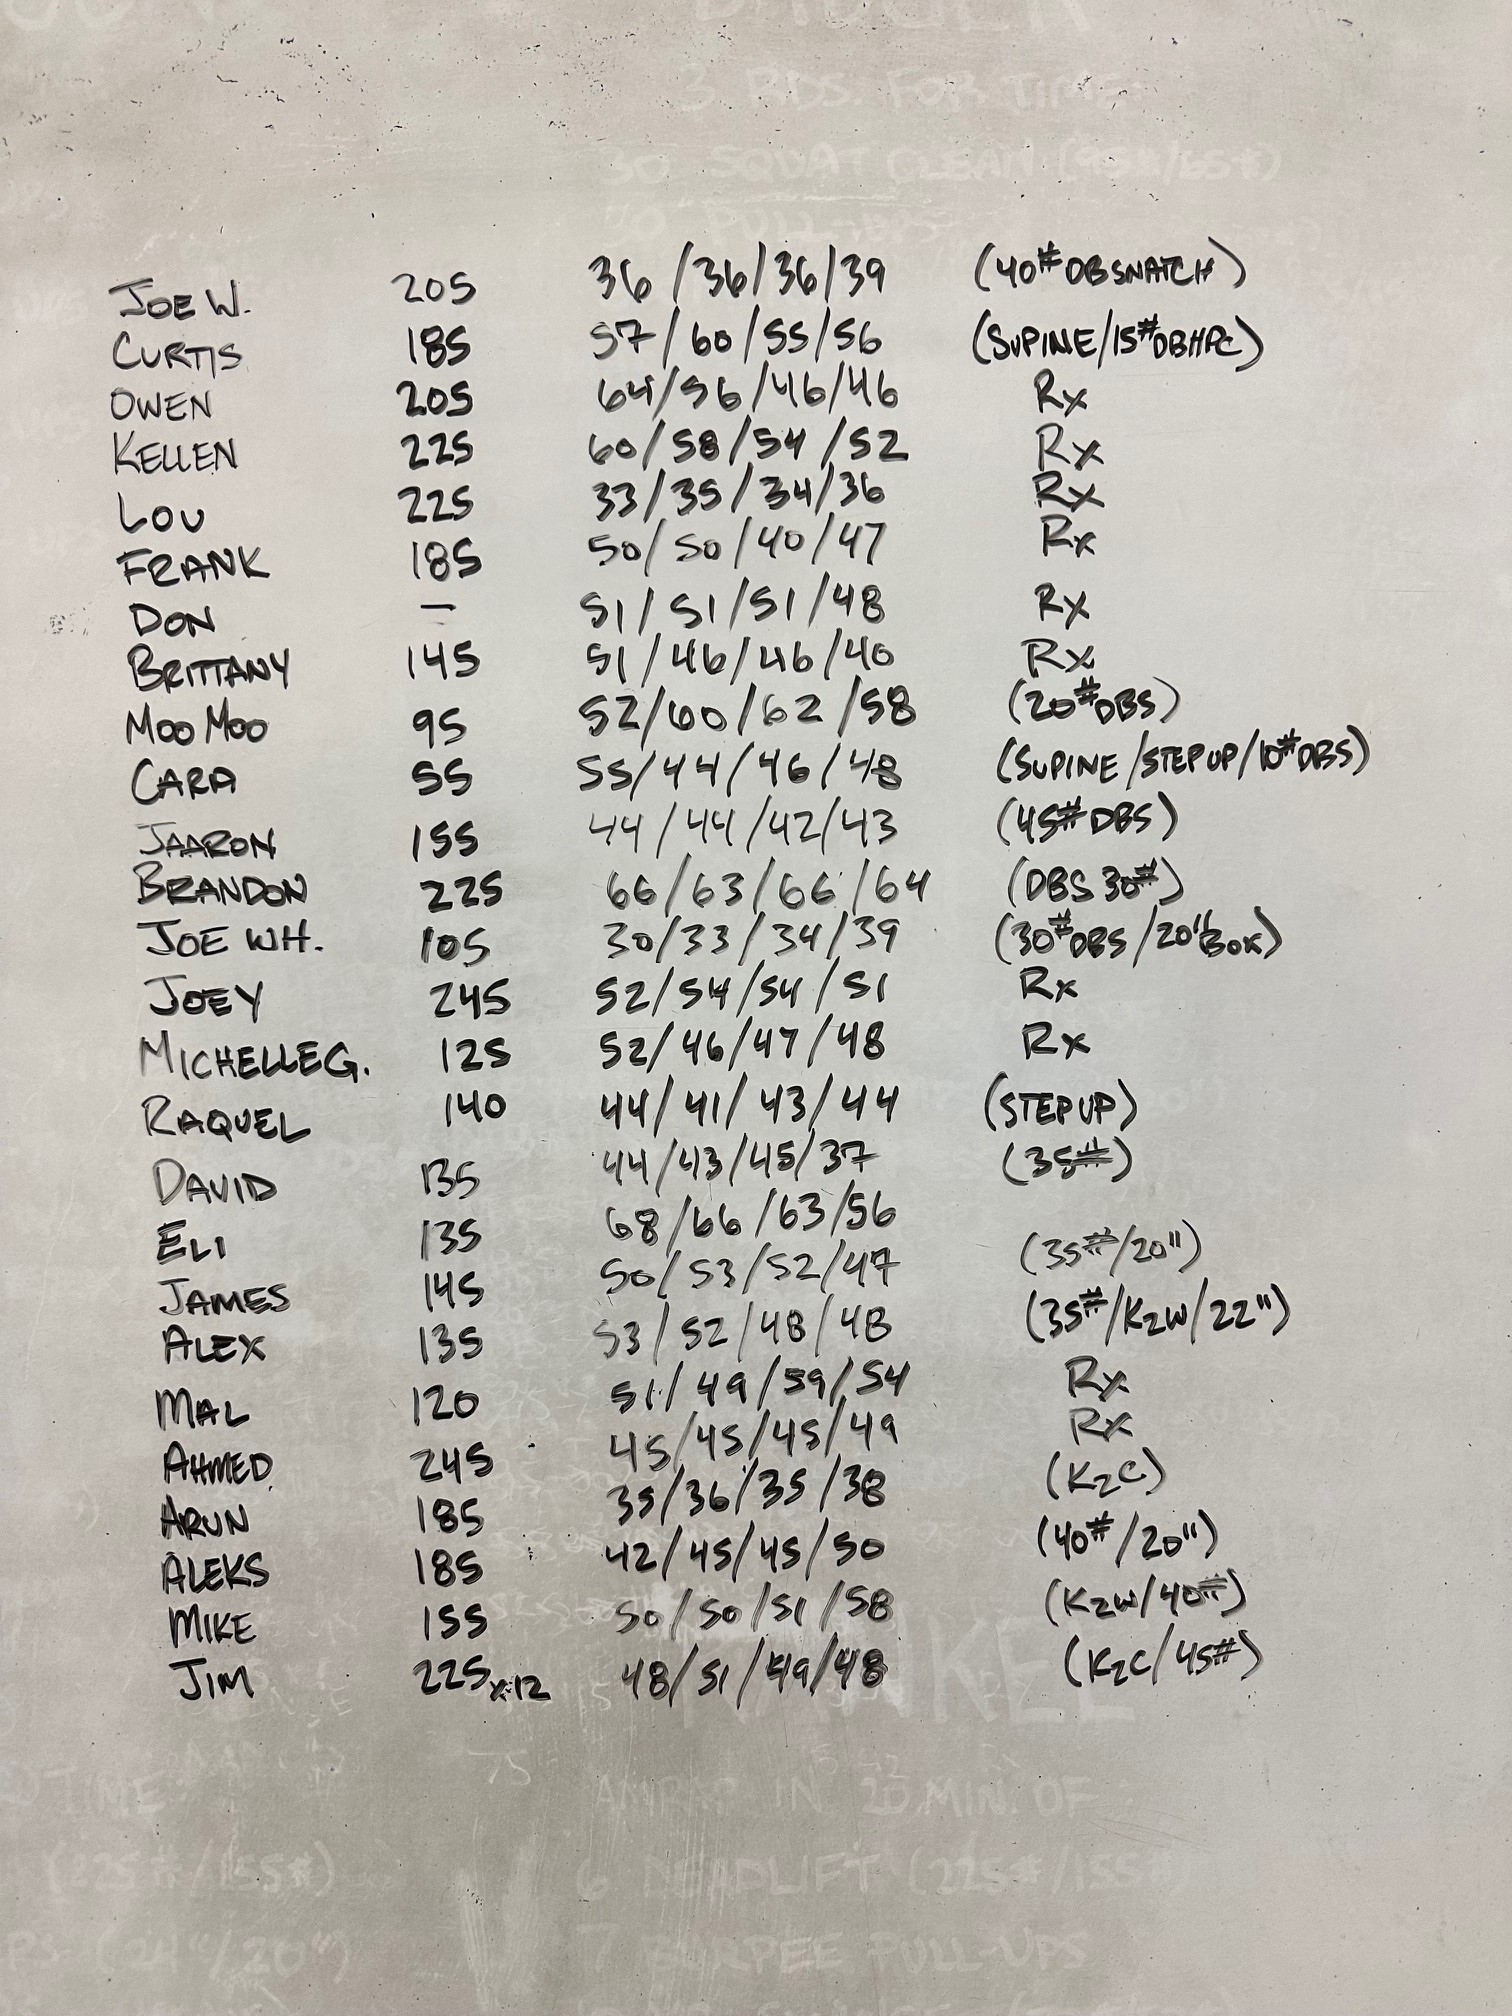 3 RDS FOR TIME
30 SQUAT CLEAN (95#/65#)
30 PULL-UPS
JOE W. 205 36/36/36/39 (40# DB SNATCH)
CURTIS 185 57/60/55/56 (SUPINE/15# DBHPC)
OWEN 205 64/56/46/46 Rx
KELLEN 225 60/58/54/52 Rx
LOU 225 33/35/34/36 Rx
FRANK 185 50/50/40/47 Rx
DON — 51/51/51/48 Rx
BRITTANY 145 51/46/46/40 Rx
MOO MOO 95 52/60/62/58 (20# DBS)
CARA 55 55/44/46/48 (SUPINE/STEP UP/10# DBS)
JAARON 155 44/44/42/43 (45# DBS)
BRANDON 225 66/63/66/64 (DBS 30#)
JOE WH. 105 30/33/34/39 (30# DBS/20" BOX)
JOEY 245 52/54/54/51 Rx
MICHELLE G. 125 52/46/47/48 Rx
RAQUEL 140 44/41/43/44 (STEP UP)
DAVID 135 44/43/45/37 (35#)
ELI 135 68/66/63/56
JAMES 145 50/53/52/47 (35#/20")
ALEX 135 53/52/48/48 (35#/K2W/22")
MAL 120 51/49/59/54 Rx
AHMED 245 45/45/45/49 Rx
ARUN 185 35/36/35/38 (K2C)
ALEKS 185 42/45/45/50 (40#/20")
MIKE 155 50/50/51/58 (K2W/40#)
JIM 225 x12 48/51/49/48 (K2C/45#)
TIME
AMRAP IN 20 MIN. OF
(225#/155#)
6 DEADLIFT (225#/155#
(24"/20")
7 BURPEE PULL-UPS